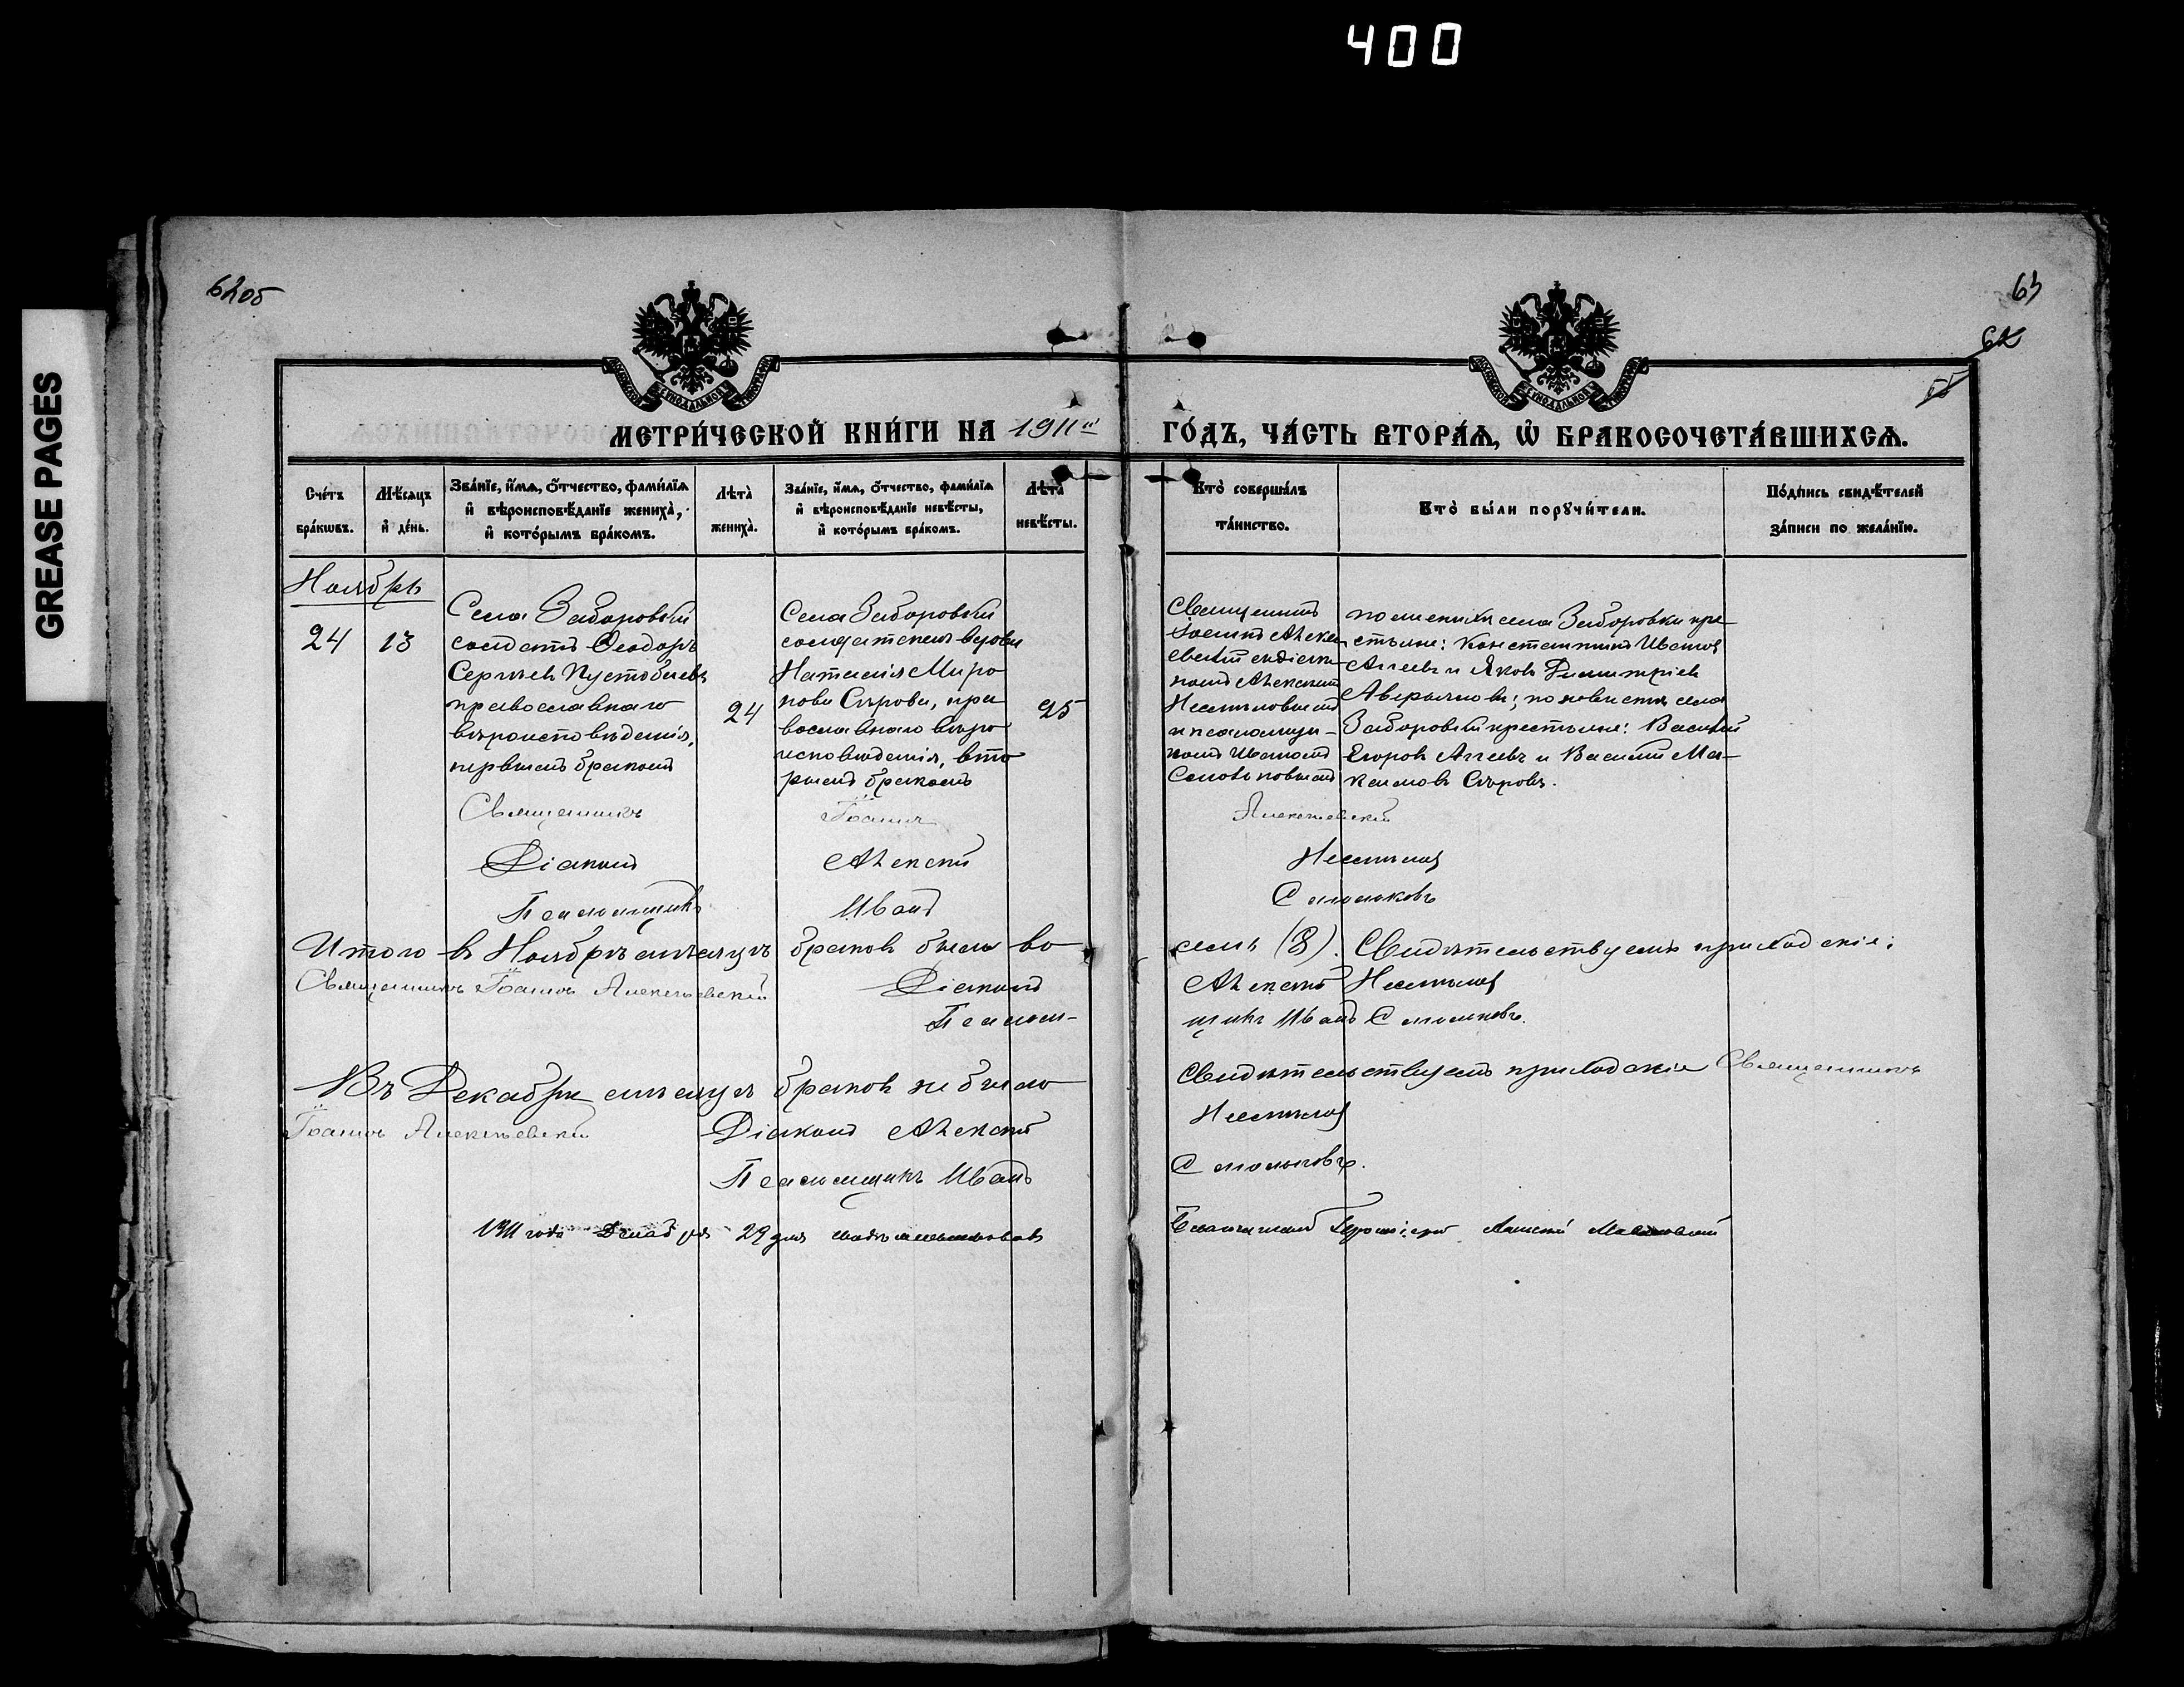 400
GREASE PAGES
62об
63
62
МЕТРИ́ЧЕСКОЙ КНИ́ГИ НА 1911й ГО́ДЪ, ЧА́СТЬ ВТОРА́Я, Ѽ БРАКОСОЧЕТА́ВШИХСЯ.
Сче́тъ бра́кѡвъ.
Мѣ́сяцъ и҆ де́нь.
Зва́нїе, и҆́мя, ѻ҆́тчество, фами́лїя и҆ вѣроисповѣ́данїе жениха̀, и҆ кото́рымъ бра́комъ.
Лѣта̀ жениха̀.
Зва́нїе, и҆́мя, ѻ҆́тчество, фами́лїя и҆ вѣроисповѣ́данїе невѣ́сты, и҆ кото́рымъ бра́комъ.
Лѣта̀ невѣ́сты.
Кто̀ соверша́лъ та́инство.
Кто̀ бы́ли порꙋчи́тели.
По́дпись свидѣ́телей за́писи по жела́нїю.
Ноябрь
24
13
Села Заборовки
солдатъ Ѳеодоръ
Сергѣевъ Пустобаевъ
православнаго
вѣроисповѣданія,
первымъ бракомъ
24
Села Заборовки
солдатская вдова
Наталія Миро
нова Сѣрова, пра
вославнаго вѣро
исповѣданія, вто
рымъ бракомъ
25
Священникъ
Іоаннъ Алексѣ
евскій съ діако
номъ Алексіемъ
Несмѣловымъ
и псаломщи-
комъ Иваномъ
Смольковымъ
по женихѣ села Заборовки кре-
стьяне: Константинъ Ивановъ
Агеевъ и Яковъ Димитріевъ
Аверьяновъ; по невѣстѣ села
Заборовки крестьяне: Василій
Егоровъ Агеевъ и Василій Ма-
ксимовъ Сѣровъ.
Священникъ Іоаннъ Алексѣевскій
Діаконъ Алексій Несмѣловъ
Псаломщикъ Иванъ Смольковъ
Итого въ Ноябрѣ мѣсяцѣ браковъ было во семь (8). Свидѣтельствуемъ приходскіе:
Священникъ Іоаннъ Алексѣевскій Діаконъ Алексій Несмѣловъ
Псалом- щикъ Иванъ Смольковъ.
Въ Декабрѣ мѣсяцѣ браковъ не было Свидѣтельствуемъ приходскіе Священникъ
Іоаннъ Алексѣевскій Діаконъ Алексій Несмѣловъ
Псаломщикъ Иванъ Смольковъ.
1911 года Декабря 29 дня Благочинный Алексій